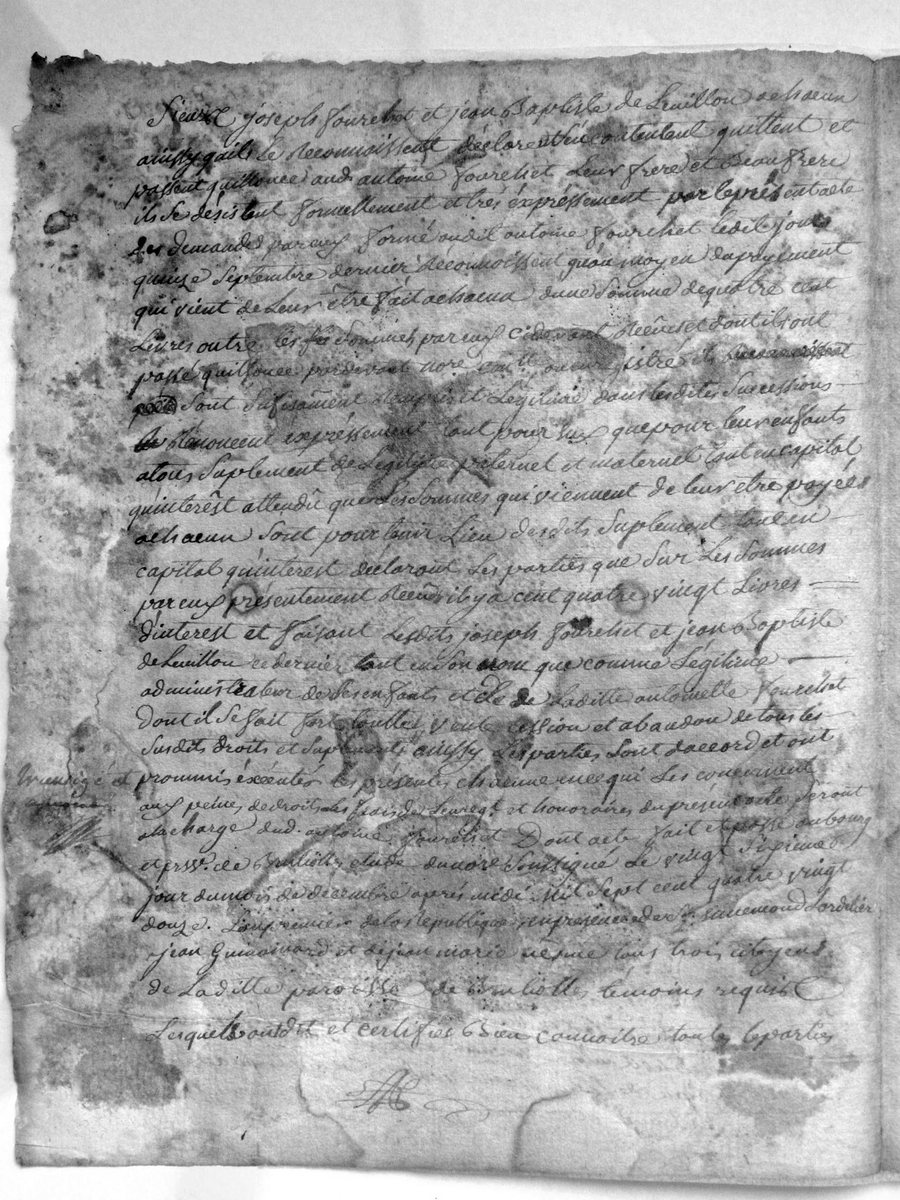 joseph fourchet et jean Baptiste de Leuillon achacun
ainsy quils Le Reconnoissent déclarent contentent quittent et
passent quittance aud. antoine fourchet Leur frere et Beaufrere
ils se désistent formellement et très expréssement par leprésent acte
Des demandes par eux formé audit antoine fourchet Ledit jour
quinze Septembre dernier Reconnoissent qu'au moyen du payement
qui vient de Leur être fait achacun dune Somme de quatre cent
Livres outre les Sommes par eux cidevant Reçües et dont ils ont
passé quittance pardevant not.re et
Sont Sufisament Remplis et Légitimé dans lesdites Successions
Renoncent expréssement tant pour eux que pour leur enfants
atous Suplement de Légitime paternel et maternel tant en capital
qu'interêst attendû que Les Sommes qui viennent de leur etre payées
achacun Sont pour tenir Lieu desdits Suplement tant en
capital qu'interest déclarant Les parties que Sur Les Sommes
par eux présentement Reçües il y a cent quatre vingt Livres
d'interest et faisant Lesdits joseph fourchet et jean Baptiste
de Leuillon ce dernier tant en Son nom que comme Légitime
administrateur de Ses enfants et de Laditte antoinette fourchet
Dont il Se fait fort toutte vente cession et abandon de tous les
Susdits droits et Suplements ainssy Les parties Sont daccord et ont
prommis éxécuter les présentes chacune en ce qui Les concernent
aux peines de droits Les frais de L'enregt. et honoraires du présent acte Seront
alacharge dud. antoine fourchet Dont acte fait et passé au bourg
et étude du not.re Soussigné Le vingt Sixieme
jour du mois de décembre après midi Mil Sept cent quatre vingt
douze. L'an premier de la République en présence de Sr. Lordelier
jean et de jean marie tous trois citoyens
de Laditte paroisse de temoins requis
Lesquels ont dit et certifiés Bien connoitre toutes les parties